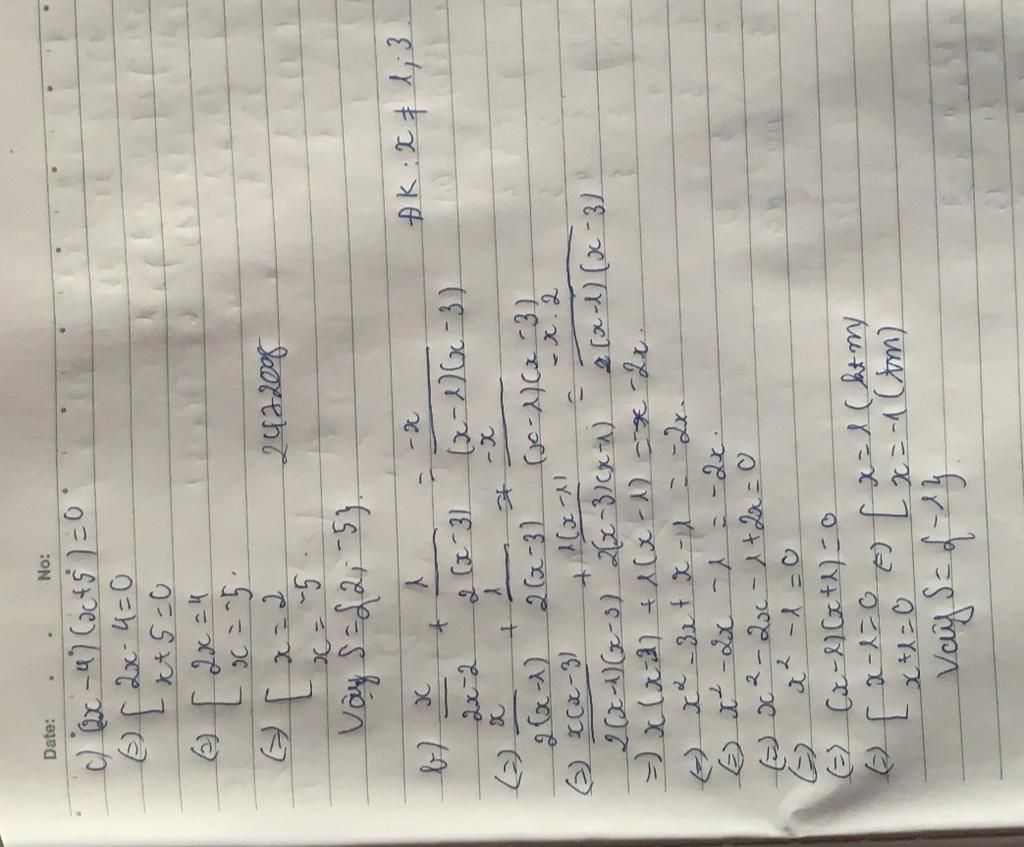 Date: No:
c) (2x-4)(x+5)=0
(=) [ 2x-4=0
x+5=0
(=) [ 2x=4
x=-5.
(=) [ x=2
x=-5.
Vậy S={2;-5}.
b) x/2x-2 + 1/2(x-3) = -x/(x-1)(x-3) ĐK: x≠1;3
(=) x/2(x-1) + 1/2(x-3) = -x/(x-1)(x-3)
(=) x(x-3)/2(x-1)(x-3) + 1(x-1)/2(x-3)(x-1) = -x.2/2(x-1)(x-3)
=) x(x-3) + 1(x-1) = -2x.
(=) x²-3x+x-1 = -2x.
(=) x²-2x-1 = -2x.
(=) x²-2x-1+2x=0
(=) x²-1=0
(=) (x-1)(x+1)=0
(=) [ x-1=0 (=) [ x=1 (ktm)
x+1=0 x=-1 (tm)
Vậy S={-1}